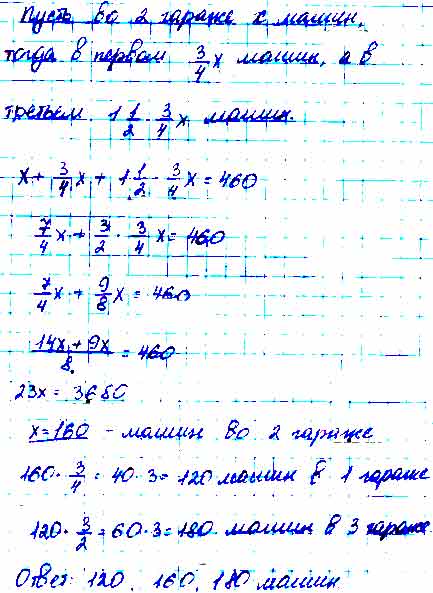 Пусть во 2 гараже x машин,
тогда в первом 3/4 x машин, а в
третьем 1 1/2 · 3/4 x машин.
x + 3/4 x + 1 1/2 · 3/4 x = 460
7/4 x + 3/2 · 3/4 x = 460
7/4 x + 9/8 x = 460
(14x + 9x)/8 = 460
23x = 3680
x = 160 - машин во 2 гараже
160 · 3/4 = 40 · 3 = 120 машин в 1 гараже
120 · 3/2 = 60 · 3 = 180 машин в 3 гараже
Ответ: 120, 160, 180 машин